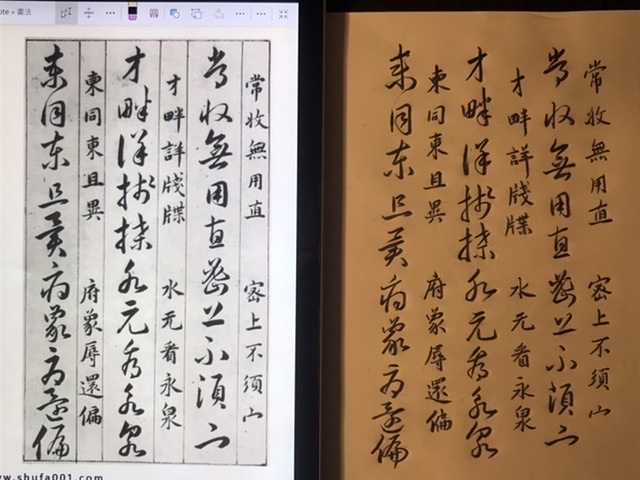 ote » 書法
常收無用直 密上不須山
常收無用直密上不須山
才畔詳牋牒 水元看永泉
才畔詳牋牒水元看永泉
東同東且異 府象辱還偏
東同東且異府象辱還偏
w.shufa001.com
常收無用直 密上不須山
常收無用直密上不須山
才畔詳牋牒 水元看永泉
才畔詳牋牒水元看永泉
東同東且異 府象辱還偏
東同東且異府象辱還偏